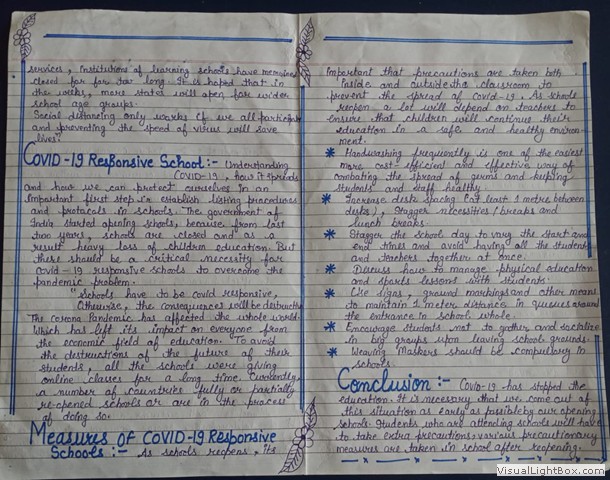 services, institutions of learning schools have remained
closed for far too long. It is hoped that in
the weeks, more states will open for wider
school age groups.
Social distancing only works if we all participate
and preventing the speed of virus will save
lives!
COVID-19 Responsive School:- Understanding
COVID-19, how it spreads
and how we can protect ourselves in an
important first step in establish listing procedures
and protocals in schools. The government of
India started opening schools, because from last
two years, schools are closed and as a
result heavy loss of children education. But
there should be a critical necessity for
covid-19 responsive schools to overcome the
pandemic problem.
"Schools have to be covid responsive,
Otherwise, the consequences will be destructive
The corona Pandemic has affected the whole world.
which has left its impact on everyone from
the economic field of education. To avoid
the destructions of the future of their
students, all the schools were giving
online classes for a long time. Currently,
a number of countries fully or partially
re-opened schools or are in the process
of doing so.
Measures OF COVID-19 Responsive
Schools:- As schools reopens, its
important that precautions are taken both
inside and outside the classroom to
prevent the spread of Covid-19. As schools
reopen a lot will depend on teachers to
ensure that children will continue their
education in a safe and healthy environ-
ment.
* Handwashing frequently is one of the easiest
more cost-efficient and effective way of
combating the spread of germs and keeping
students and staff healthy
* Increase desk spacing (at least 1 metre between
desks), stagger necessities (breaks and
lunch breaks.
* Stagger the school day to vary the start and
end times and avoid having all the students
and teachers together at once.
* Discuss how to manage physical education
and sports lessons with students.
* Use signs, ground markings and other means
to maintain 1 meter distance in queues around
the entrance in school whole.
* Encourage students not to gather and socialize
in big groups upon leaving school grounds.
* Weaving Maskers should be compulsory in
schools.
Conclusion:- Covid-19 has stopped the
education. It is necessary that we come out of
this situation as early as possible by our opening
schools. Students who are attending schools will have
to take extra precautions, various precautionary
measures are taken in school after reopening.
VisualLightBox.com